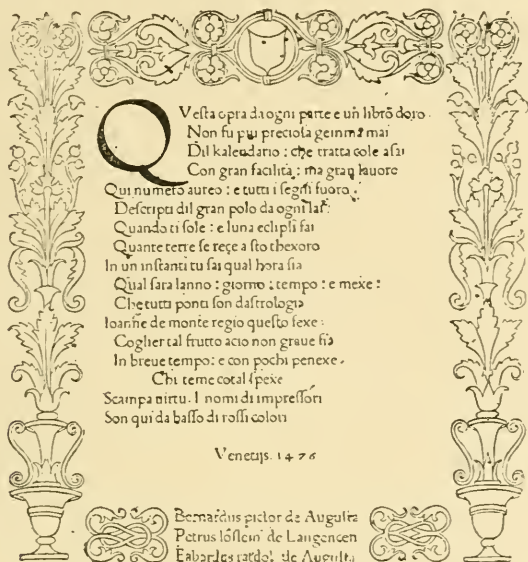 Questa opra da ogni parte e un libro doro.
Non fu piu preciosa gemma mai
Dil kalendario: che tratta cose asai
Con gran facilita: ma gran lauore
Qui numero aureo: e tutti i segni fuoro
Descripti dil gran polo da ogni lai:
Quando ti sole: e luna eclipsi fai
Quante terre se rece a sto thexoro
In un instanti tu sai qual hora sia
Qual sara lanno: giorno: tempo: e mexe:
Che tutti ponti son dastrologia
Ioanne de monte regio questo fexe:
Coglier tal frutto acio non graue sia
In breue tempo: e con pochi penexe.
Chi teme cotal spexe
Scampa uirtu. I nomi di impressori
Son qui da basso di rossi colori
Venetijs. 1476
Bernardus pictor de Augusta
Petrus loslein de Langencen
Erhardus ratdolt de Augusta